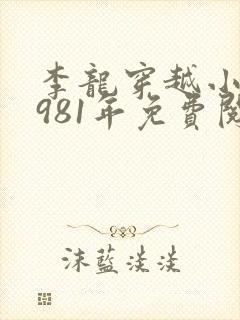 李龍穿越小
981年免費閱
沫藍淡淡